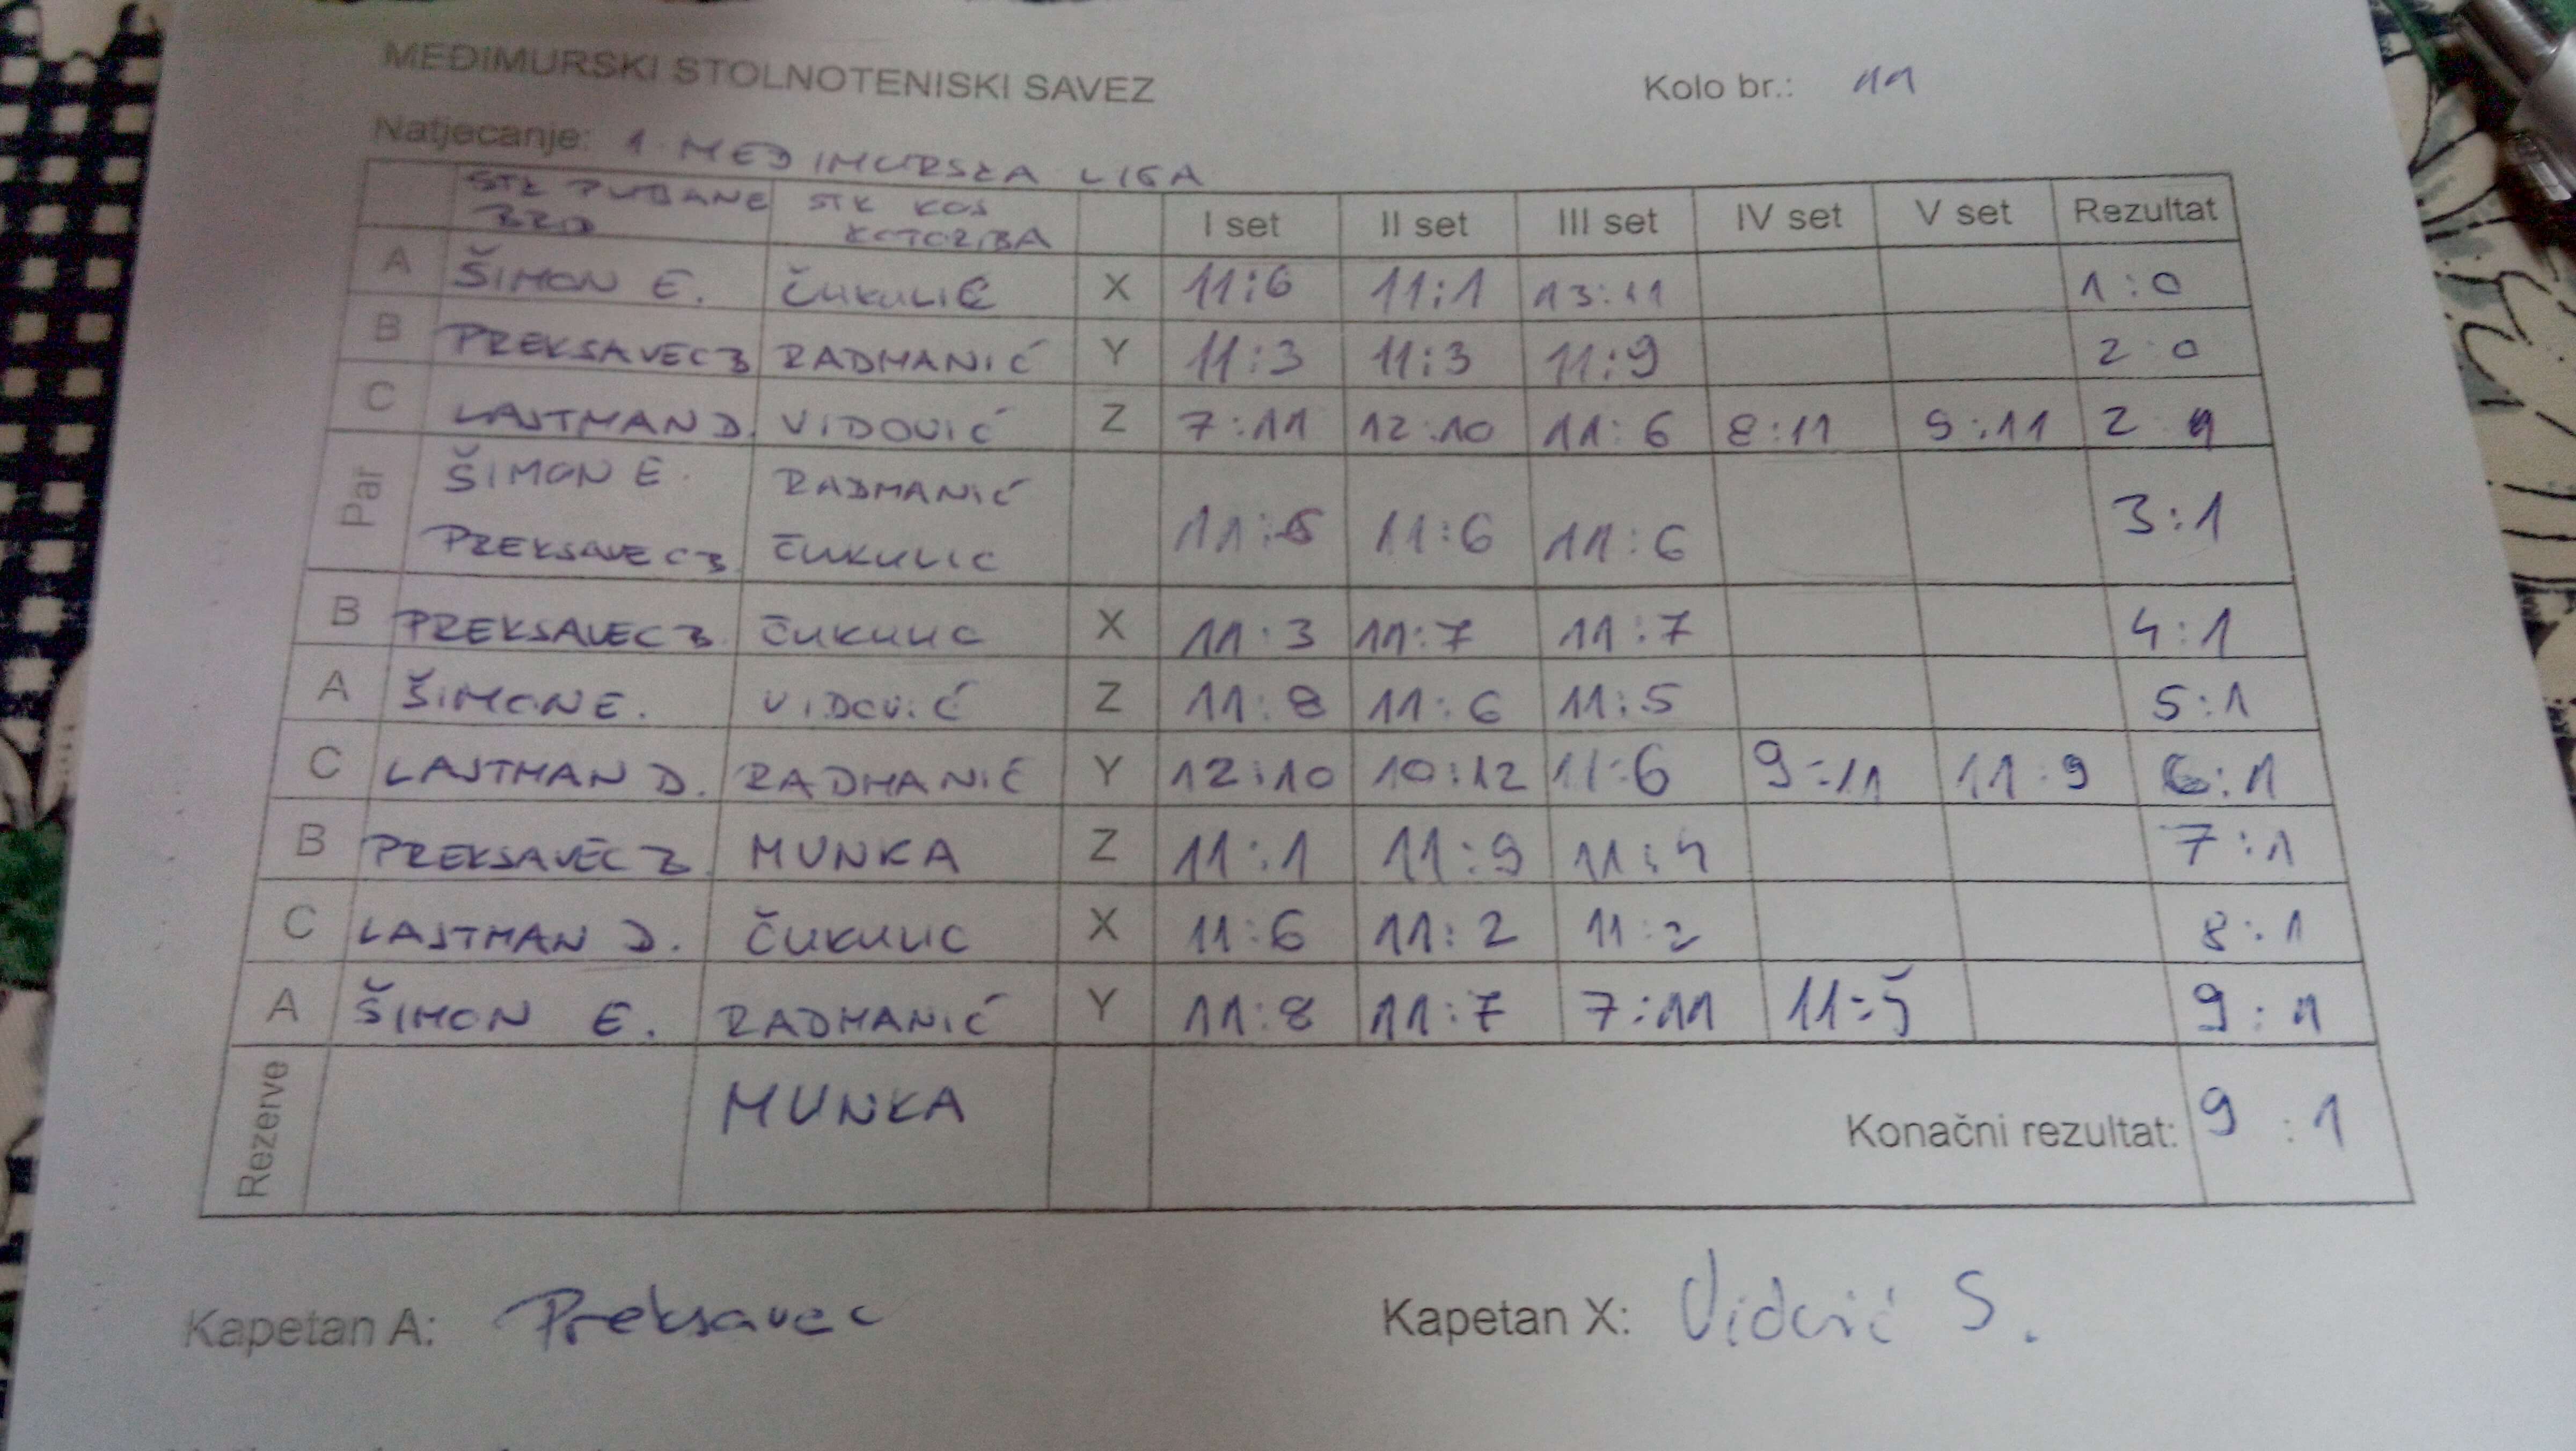 MEĐIMURSKI STOLNOTENISKI SAVEZ
Kolo br.: 11
Natjecanje: 1. MEĐIMURSKA LIGA
STK PUŠĆANE BRD STK KOS KOTORIBA I set II set III set IV set V set Rezultat
A ŠIMON E. ČUKULIĆ X 11:6 11:1 13:11 1:0
B PREKSAVEC Z RADMANIĆ Y 11:3 11:3 11:9 2:0
C LAJTMAN D. VIDOVIĆ Z 7:11 12:10 11:6 8:11 9:11 2 1
Par ŠIMON E. RADMANIĆ
PREKSAVEC Z ČUKULIC 11: 11:6 11:6 3:1
B PREKSAVEC Z. ČUKULIC X 11:3 11:7 11:7 4:1
A ŠIMON E. VIDOVIĆ Z 11:8 11:6 11:5 5:1
C LAJTMAN D. RADMANIĆ Y 12:10 10:12 11:6 9:11 11:9 6:1
B PREKSAVEC Z. MUNKA Z 11:1 11:9 11:4 7:1
C LAJTMAN D. ČUKULIC X 11:6 11:2 11:2 8:1
A ŠIMON E. RADMANIĆ Y 11:8 11:7 7:11 11:5 9:1
Rezerve MUNKA Konačni rezultat: 9:1
Kapetan A: Preksavec Kapetan X: Vidović S.